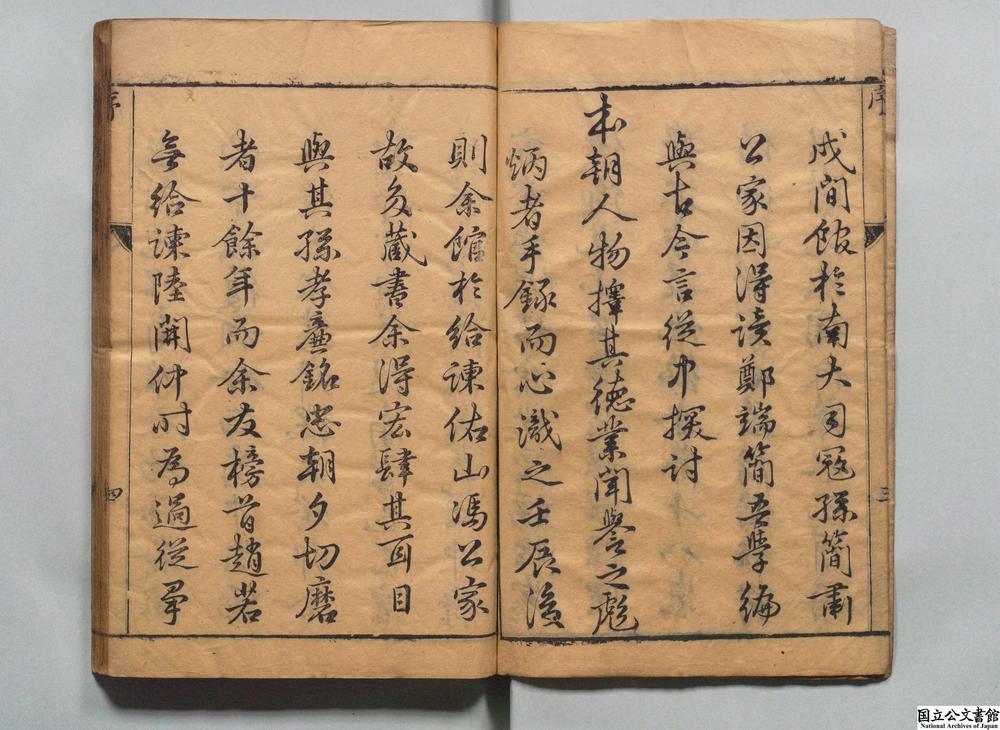 序
戌間館於南大司冦孫簡肅
公家因得讀鄭端簡吾學編
與古今言從中探討
本朝人物擇其德業聞譽之彪
炳者手錄而心識之壬辰後
三
則余館於給諫佑山馮公家
故多藏書余得宏肆其耳目
與其孫孝廉銘忠朝夕切磨
者十餘年而余友榜首趙若
無給諫陸開仲時為過從畢
序
四
国立公文書館
National Archives of Japan